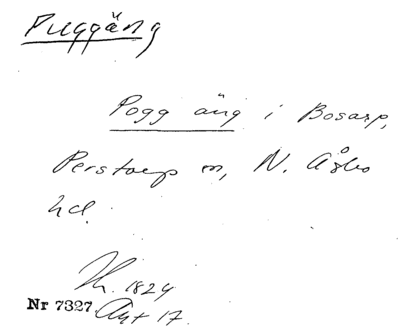 Puggäng
Pogg äng i Bosarp,
Perstorp sn, N. Åsbo
hd.
Th. 1824
Nr 7327. Akt 17.